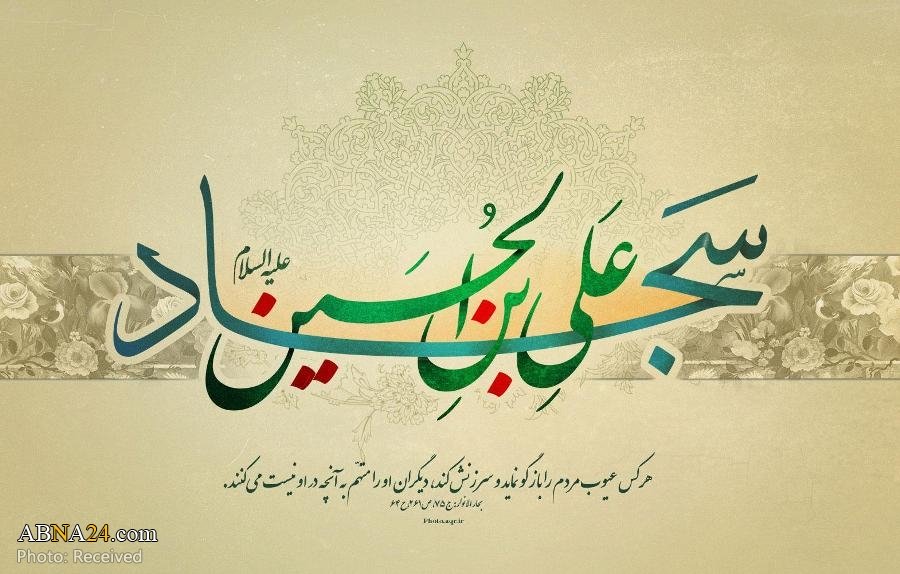 سجاد
علی بن الحسین
علیه السلام
هرکس عیوب مردم را بازگو نماید و سرزنش کند، دیگران او را متهّم به آنچه در او نیست می‌کنند.
بحارالانوار: ج ۷۵، ص ۲۶۱، ح ۶۴
Photo.aqr.ir
ABNA24.com
Photo: Received